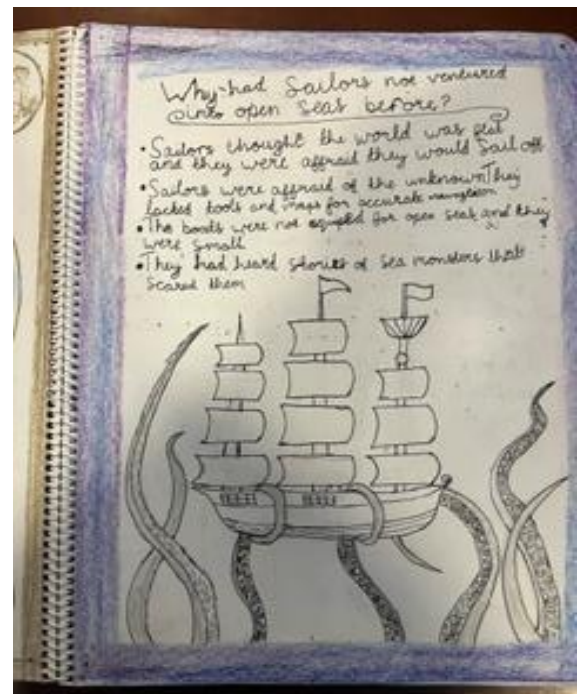 Why had Sailors not ventured
into open Seas before?
• Sailors thought the world was flat
and they were affraid they would Sail off
• Sailors were affraid of the unknown They
lacked tools and maps for accurate navigation
• The boats were not equipted for open seas and they
were small
• They had heard stories of Sea monsters that
Scared them